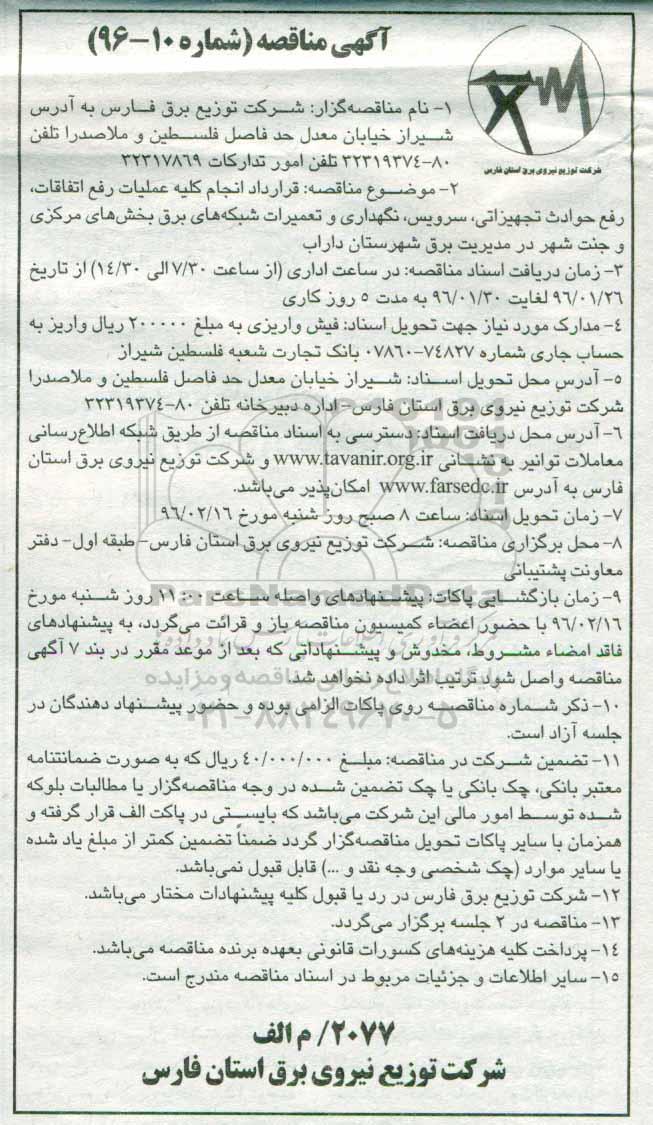 آگهی مناقصه (شماره ۱۰-۹۶)
شرکت توزیع نیروی برق استان فارس
۱- نام مناقصه‌گزار: شرکت توزیع برق فارس به آدرس
شیراز خیابان معدل حد فاصل فلسطین و ملاصدرا تلفن
۸۰-۳۲۳۱۹۳۷۴ تلفن امور تدارکات ۳۲۳۱۷۸۶۹
۲- موضوع مناقصه: قرارداد انجام کلیه عملیات رفع اتفاقات،
رفع حوادث تجهیزاتی، سرویس، نگهداری و تعمیرات شبکه‌های برق بخش‌های مرکزی
و جنت شهر در مدیریت برق شهرستان داراب
۳- زمان دریافت اسناد مناقصه: در ساعت اداری (از ساعت ۷/۳۰ الی ۱۴/۳۰) از تاریخ
۹۶/۰۱/۲۶ لغایت ۹۶/۰۱/۳۰ به مدت ۵ روز کاری
۴- مدارک مورد نیاز جهت تحویل اسناد: فیش واریزی به مبلغ ۲۰۰۰۰۰ ریال واریز به
حساب جاری شماره ۷۴۸۲۷-۰۷۸۶۰ بانک تجارت شعبه فلسطین شیراز
۵- آدرس محل تحویل اسناد: شیراز خیابان معدل حد فاصل فلسطین و ملاصدرا
شرکت توزیع نیروی برق استان فارس- اداره دبیرخانه تلفن ۸۰-۳۲۳۱۹۳۷۴
۶- آدرس محل دریافت اسناد: دسترسی به اسناد مناقصه از طریق شبکه اطلاع‌رسانی
معاملات توانیر به نشانی www.tavanir.org.ir و شرکت توزیع نیروی برق استان
فارس به آدرس www.farsedc.ir امکان‌پذیر می‌باشد.
۷- زمان تحویل اسناد: ساعت ۸ صبح روز شنبه مورخ ۹۶/۰۲/۱۶
۸- محل برگزاری مناقصه: شرکت توزیع نیروی برق استان فارس- طبقه اول- دفتر
معاونت پشتیبانی
۹- زمان بازگشایی پاکات: پیشنهادهای واصله ساعت ۱۱:۰۰ روز شنبه مورخ
۹۶/۰۲/۱۶ با حضور اعضاء کمیسیون مناقصه باز و قرائت می‌گردد، به پیشنهادهای
فاقد امضاء مشروط، مخدوش و پیشنهاداتی که بعد از موعد مقرر در بند ۷ آگهی
مناقصه واصل شود ترتیب اثر داده نخواهد شد.
۱۰- ذکر شماره مناقصه روی پاکات الزامی بوده و حضور پیشنهاد دهندگان در
جلسه آزاد است.
۱۱- تضمین شرکت در مناقصه: مبلغ ۴۰/۰۰۰/۰۰۰ ریال که به صورت ضمانتنامه
معتبر بانکی، چک بانکی یا چک تضمین شده در وجه مناقصه‌گزار یا مطالبات بلوکه
شده توسط امور مالی این شرکت می‌باشد که بایستی در پاکت الف قرار گرفته و
همزمان با سایر پاکات تحویل مناقصه‌گزار گردد ضمناً تضمین کمتر از مبلغ یاد شده
یا سایر موارد (چک شخصی وجه نقد و ...) قابل قبول نمی‌باشد.
۱۲- شرکت توزیع برق فارس در رد یا قبول کلیه پیشنهادات مختار می‌باشد.
۱۳- مناقصه در ۲ جلسه برگزار می‌گردد.
۱۴- پرداخت کلیه هزینه‌های کسورات قانونی بعهده برنده مناقصه می‌باشد.
۱۵- سایر اطلاعات و جزئیات مربوط در اسناد مناقصه مندرج است.
۲۰۷۷/ م الف
شرکت توزیع نیروی برق استان فارس
ParsNamadData
۰۲۱-۸۸۳۴۹۶۷۰-۵